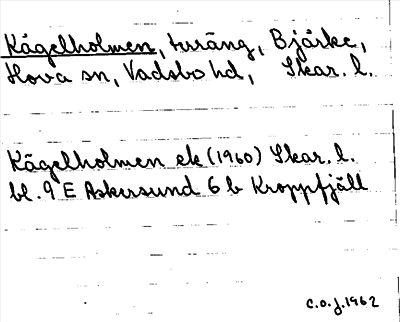 Kägelholmen, terräng, Bjärke,
Hova sn, Vadsbo hd, Skar. l.
Kägelholmen ek (1960) Skar. l.
bl. 9 E Askersund 6 b Kroppfjäll
C.O.J. 1962